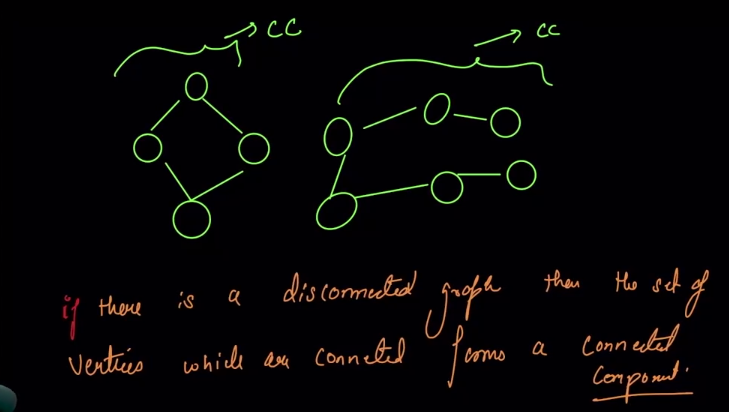 CC
CC
if there is a disconnected graph then the set of
vertices which are connected forms a connected
component.